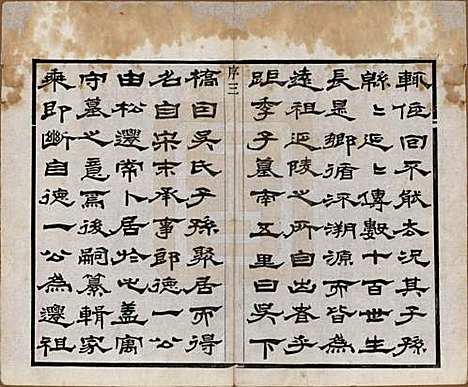 輒低回不能去況其子孫
緜緜延延傳數十百世生
長是鄉循流溯源而皆為
遠祖延陵之所自出者乎
距季子墓南五里曰吳下
序三
橋曰吳氏子孫聚居而得
名自宋末承事郎德一公
由松遷常卜居於此蓋寓
守墓之意焉後嗣纂輯家
乘即斷自德一公為遷祖